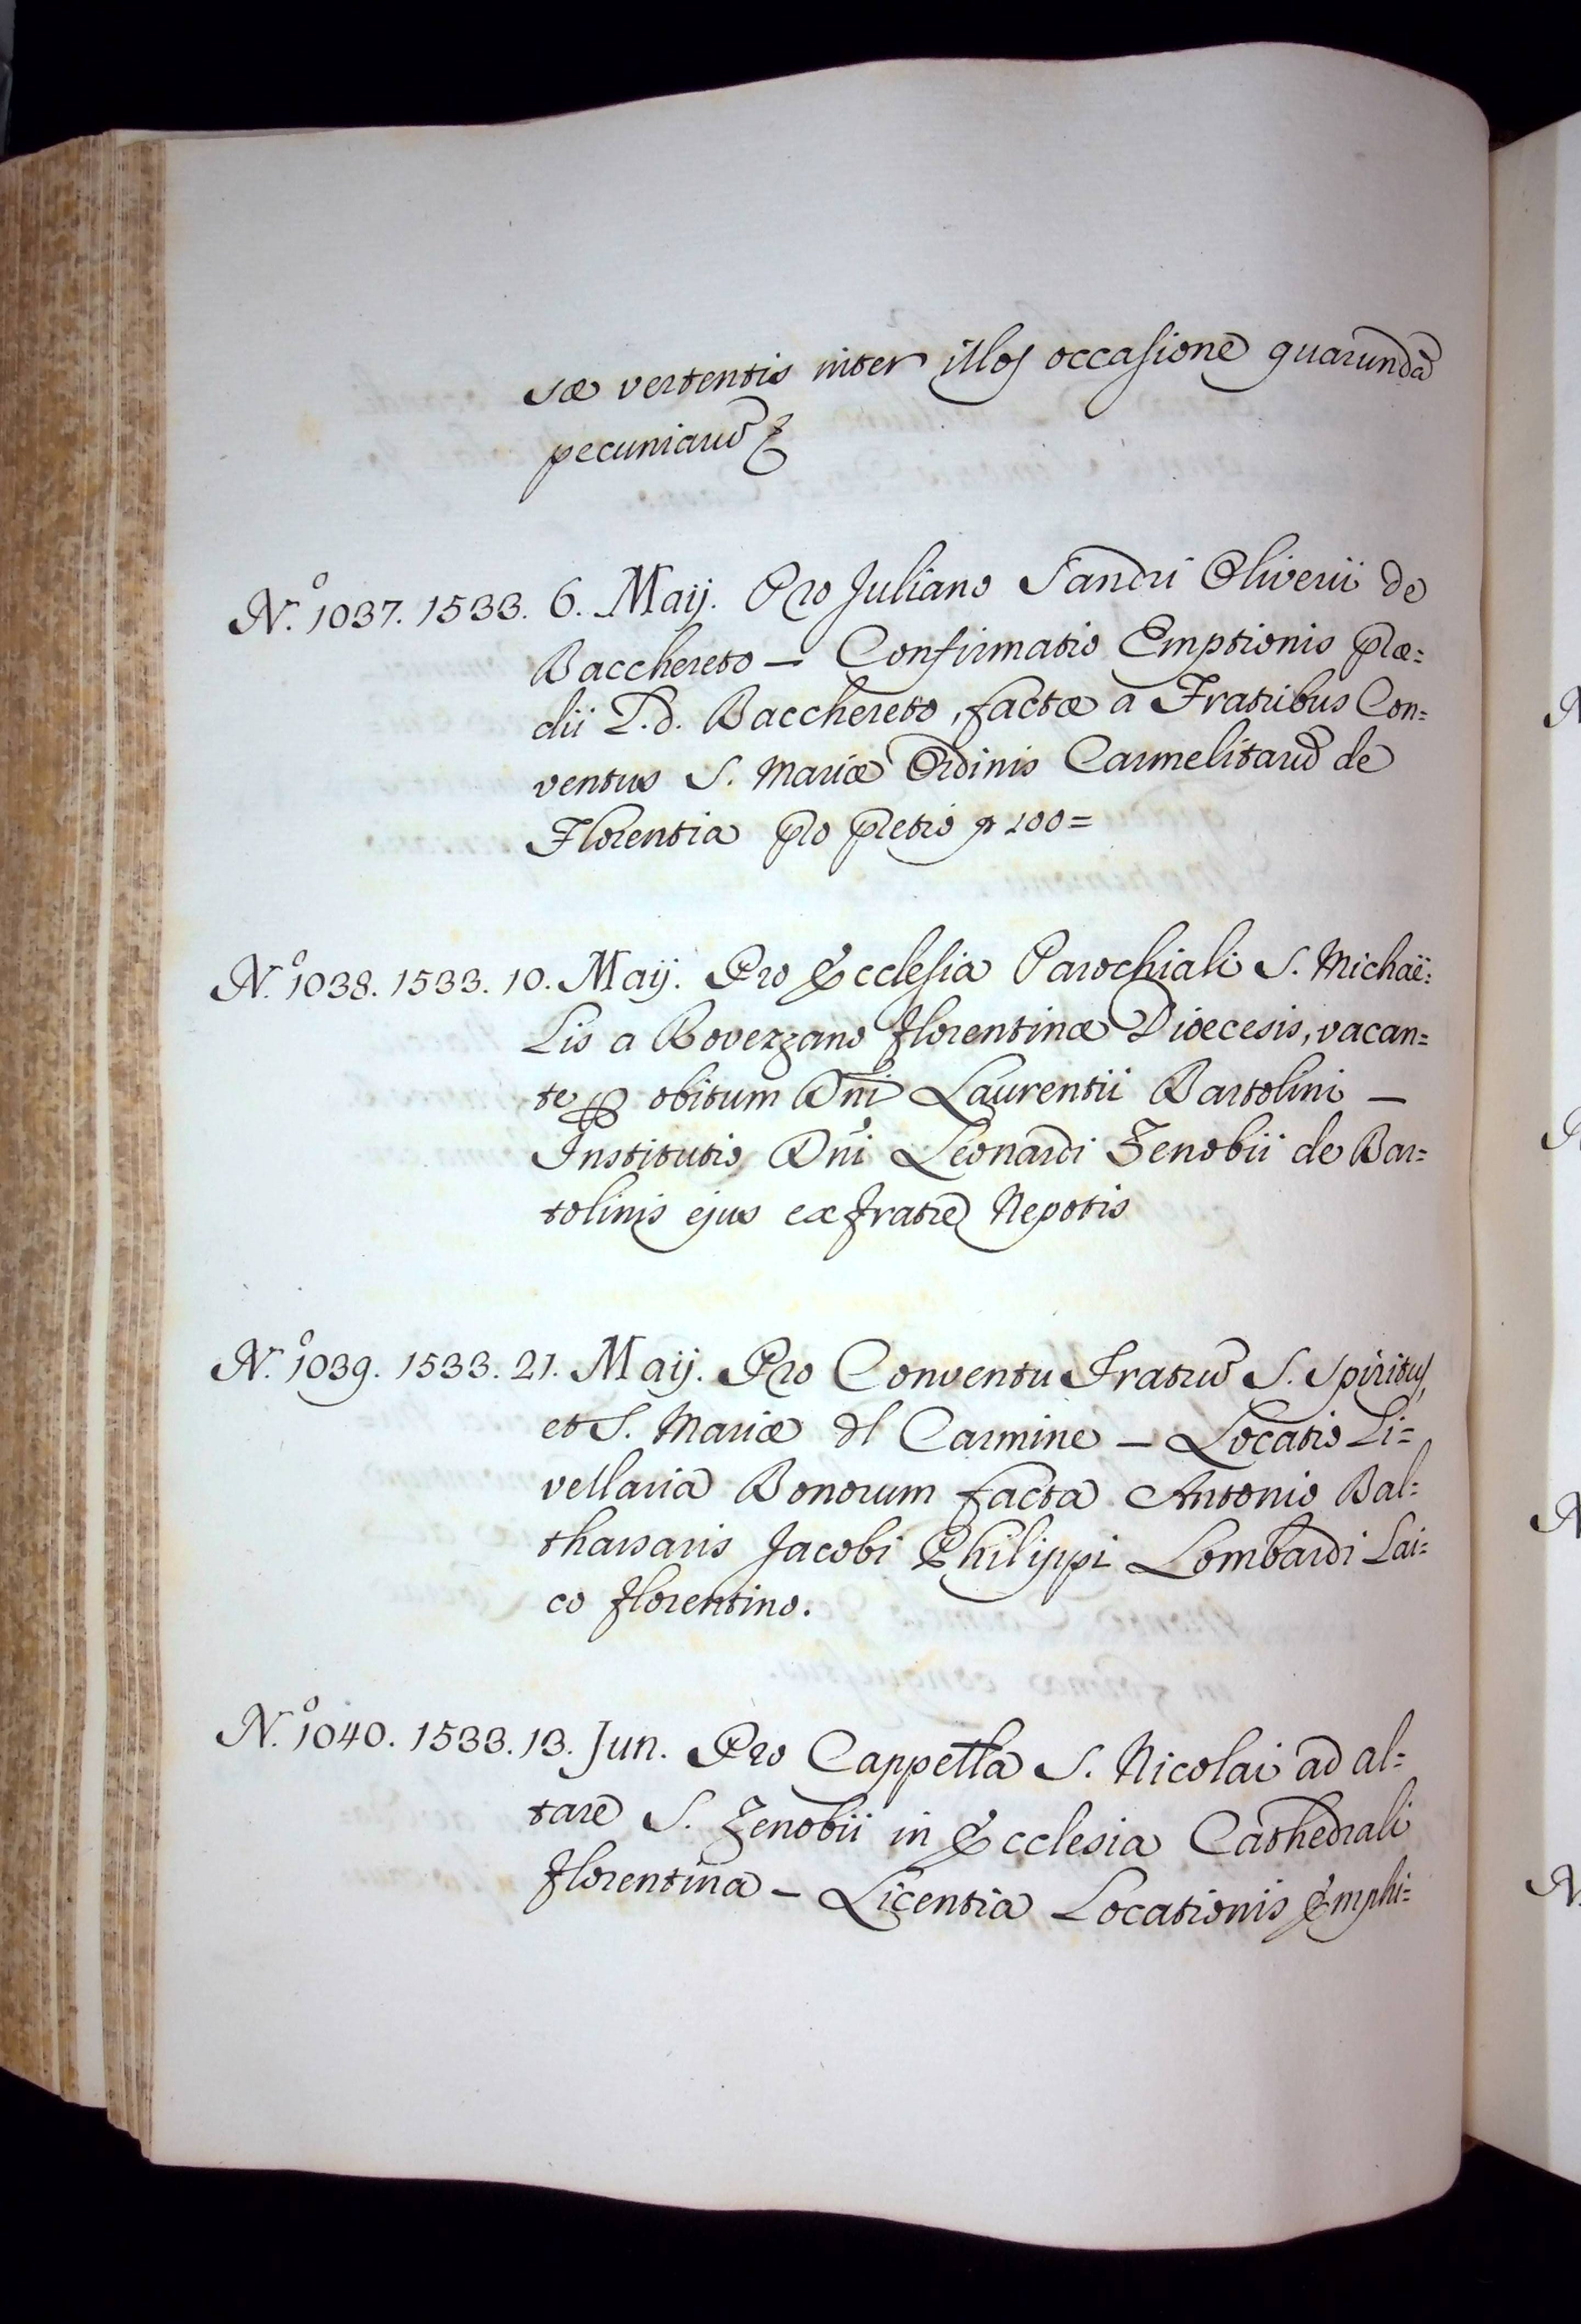 sæ vertentis inter illos occasione quarundã
pecuniarũ &
N.º 1037. 1533. 6. Maij. Pro Juliano Sandri Oliverii de
Bacchereto — Confirmatio Emptionis præ=
dii P.d. Bacchereto, factæ a Fratribus Con=
ventus S. Mariæ Ordinis Carmelitarũ de
Florentia pro pretio 100=
N.º 1038. 1533. 10. Maij. Pro Ecclesia Parochiali S. Michaë=
lis a Rovezzano Florentinæ Dioecesis, vacan=
te obitum Dñi Laurentii Bartolini —
Institutio Dñi Leonardi Zenobii de Bar=
tolinis ejus ex fratre Nepotis
N.º 1039. 1533. 21. Maij. Pro Conventu Fratrũ S. Spiritus,
et S. Mariæ dl Carmine — Locatio Li=
vellaria Bonorum facta Antonio Bal=
thassaris Jacobi Philippi Lombardi Lai=
co florentino.
N.º 1040. 1533. 13. Jun. Pro Cappella S. Nicolai ad al=
tare S. Zenobii in Ecclesia Cathedrali
florentina — Licentia Locationis Emphi=